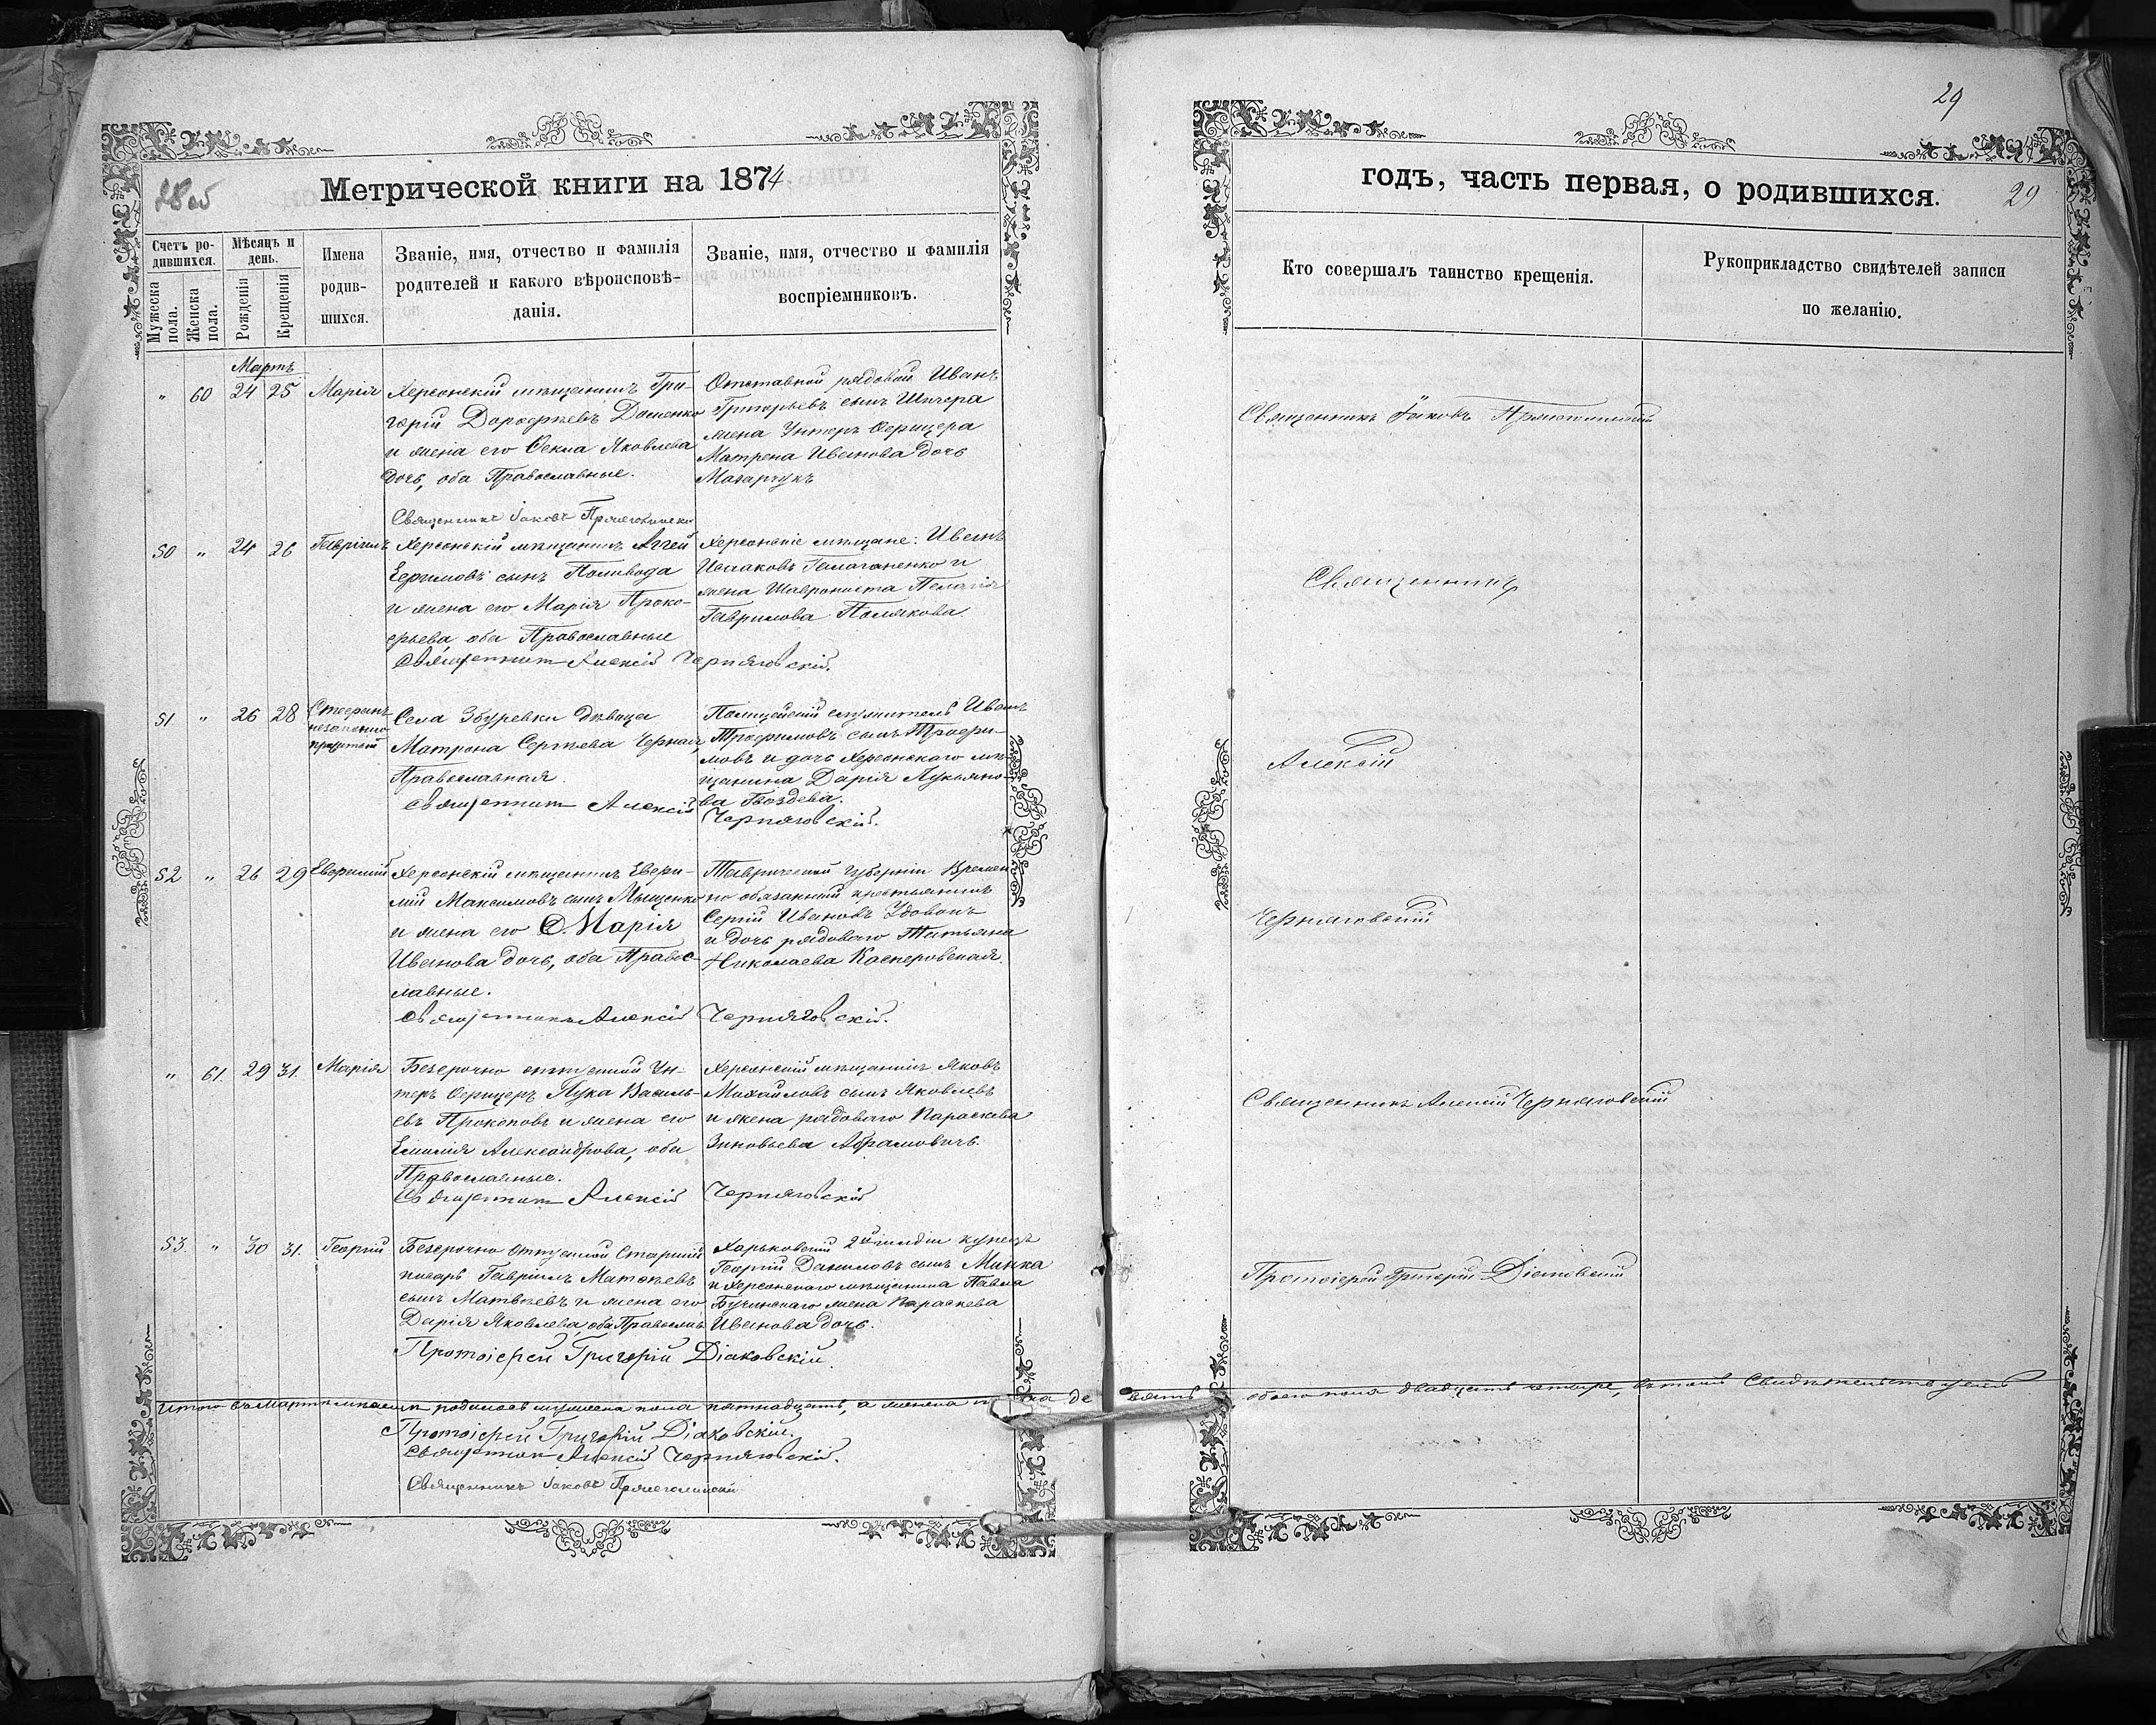 29
28 об
Метрической книги на 1874
годъ, часть первая, о родившихся.
29
Счетъ ро-
дившихся.
Мужеска
пола.
Женска
пола.
Мѣсяцъ и
день.
Рожденія
Крещенія
Имена
родив-
шихся.
Званіе, имя, отчество и фамилія
родителей и какого вѣроисповѣ-
данія.
Званіе, имя, отчество и фамилія
воспріемниковъ.
Кто совершалъ таинство крещенія.
Рукоприкладство свидѣтелей записи
по желанію.
Мартъ
" 60 24 25 Марія
Херсонскій мѣщанинъ Гри-
горій Дорофѣевъ Доценко
и жена его Ѳекла Яковлева
дочь, оба Православные.
Священникъ Іаковъ
Отставной рядовой Иванъ
Григорьевъ сынъ
жена Унтеръ Офицера
Матрена Иванова дочь
Мазарчукъ
Священникъ Іаковъ
50 " 24 26 Гавріилъ
Херсонскій мѣщанинъ Аггей
Ефимовъ сынъ Поливода
и жена его Марія Проко-
фьева, оба Православные
Священникъ Алексій Черняговскій.
Херсонскіе мѣщане: Иванъ
Исааковъ Галаганенко и
жена Пелагія
Гаврилова Полякова.
Священникъ
51 " 26 28 Стефанъ
незаконно
прижитый
Села Збурьевки дѣвица
Матрона Сергѣева Черная,
Православная.
Священникъ Алексій
Черняговскій.
Полицейскій служитель Иванъ
Трофимовъ сынъ Трофи-
мовъ и дочь Херсонскаго мѣ-
щанина Дарія Лукьяно-
ва Гвоздева.
Алексій
52 " 26 29 Евфимій
Херсонскій мѣщанинъ Евфи-
мій Максимовъ сынъ Мыценко
и жена его Марія
Иванова дочь, оба Правос-
лавные.
Священникъ Алексій Черняговскій.
Таврической губерніи Времен-
но обязанный крестьянинъ
Сергій Ивановъ Удовокъ
и дочь рядоваго Татьяна
Николаева Касперовская.
Черняговскій
" 61. 29 31. Марія
Безсрочно отпускной Ун-
теръ Офицеръ Лука Василь-
евъ Прокоповъ и жена его
Емилія Александрова, оба
Православные.
Священникъ Алексій Черняговскій
Херсонскій мѣщанинъ Яковъ
Михайловъ сынъ Яковлевъ
и жена рядоваго Параскева
Зиновьева Абрамовичъ.
Священникъ Алексій Черняговскій
53. " 30 31. Георгій
Безсрочно отпускной Старшій
писарь Гавріилъ Матвѣевъ
сынъ Матвѣевъ и жена его
Дарія Яковлева, оба Православ.
Протоіерей Григорій Діаковскій.
Харьковскій 2й гильдіи купецъ
Георгій Даниловъ сынъ Минка
и Херсонскаго мѣщанина Павла
Бучинскаго жена Параскева
Иванова дочь.
Протоіерей Григорій Діаковскій
Итого въ Мартѣ мѣсяцѣ родилось мужеска пола пятнадцать, а женска пола де вять обоего пола двадцать четыре, въ томъ Свидѣтельствуемъ
Протоіерей Григорій Діаковскій.
Священникъ Алексій Черняговскій.
Священникъ Іаковъ